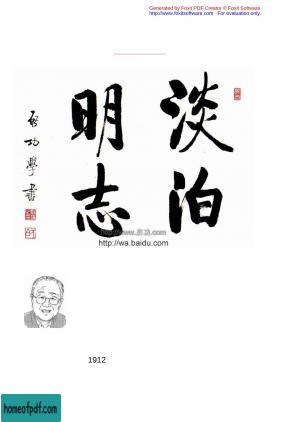 Generated by Foxit PDF Creator © Foxit Software
http://www.foxitsoftware.com For evaluation only.
淡泊
明志
启功学书
http://wa.baidu.com
1912
homeofpdf.com